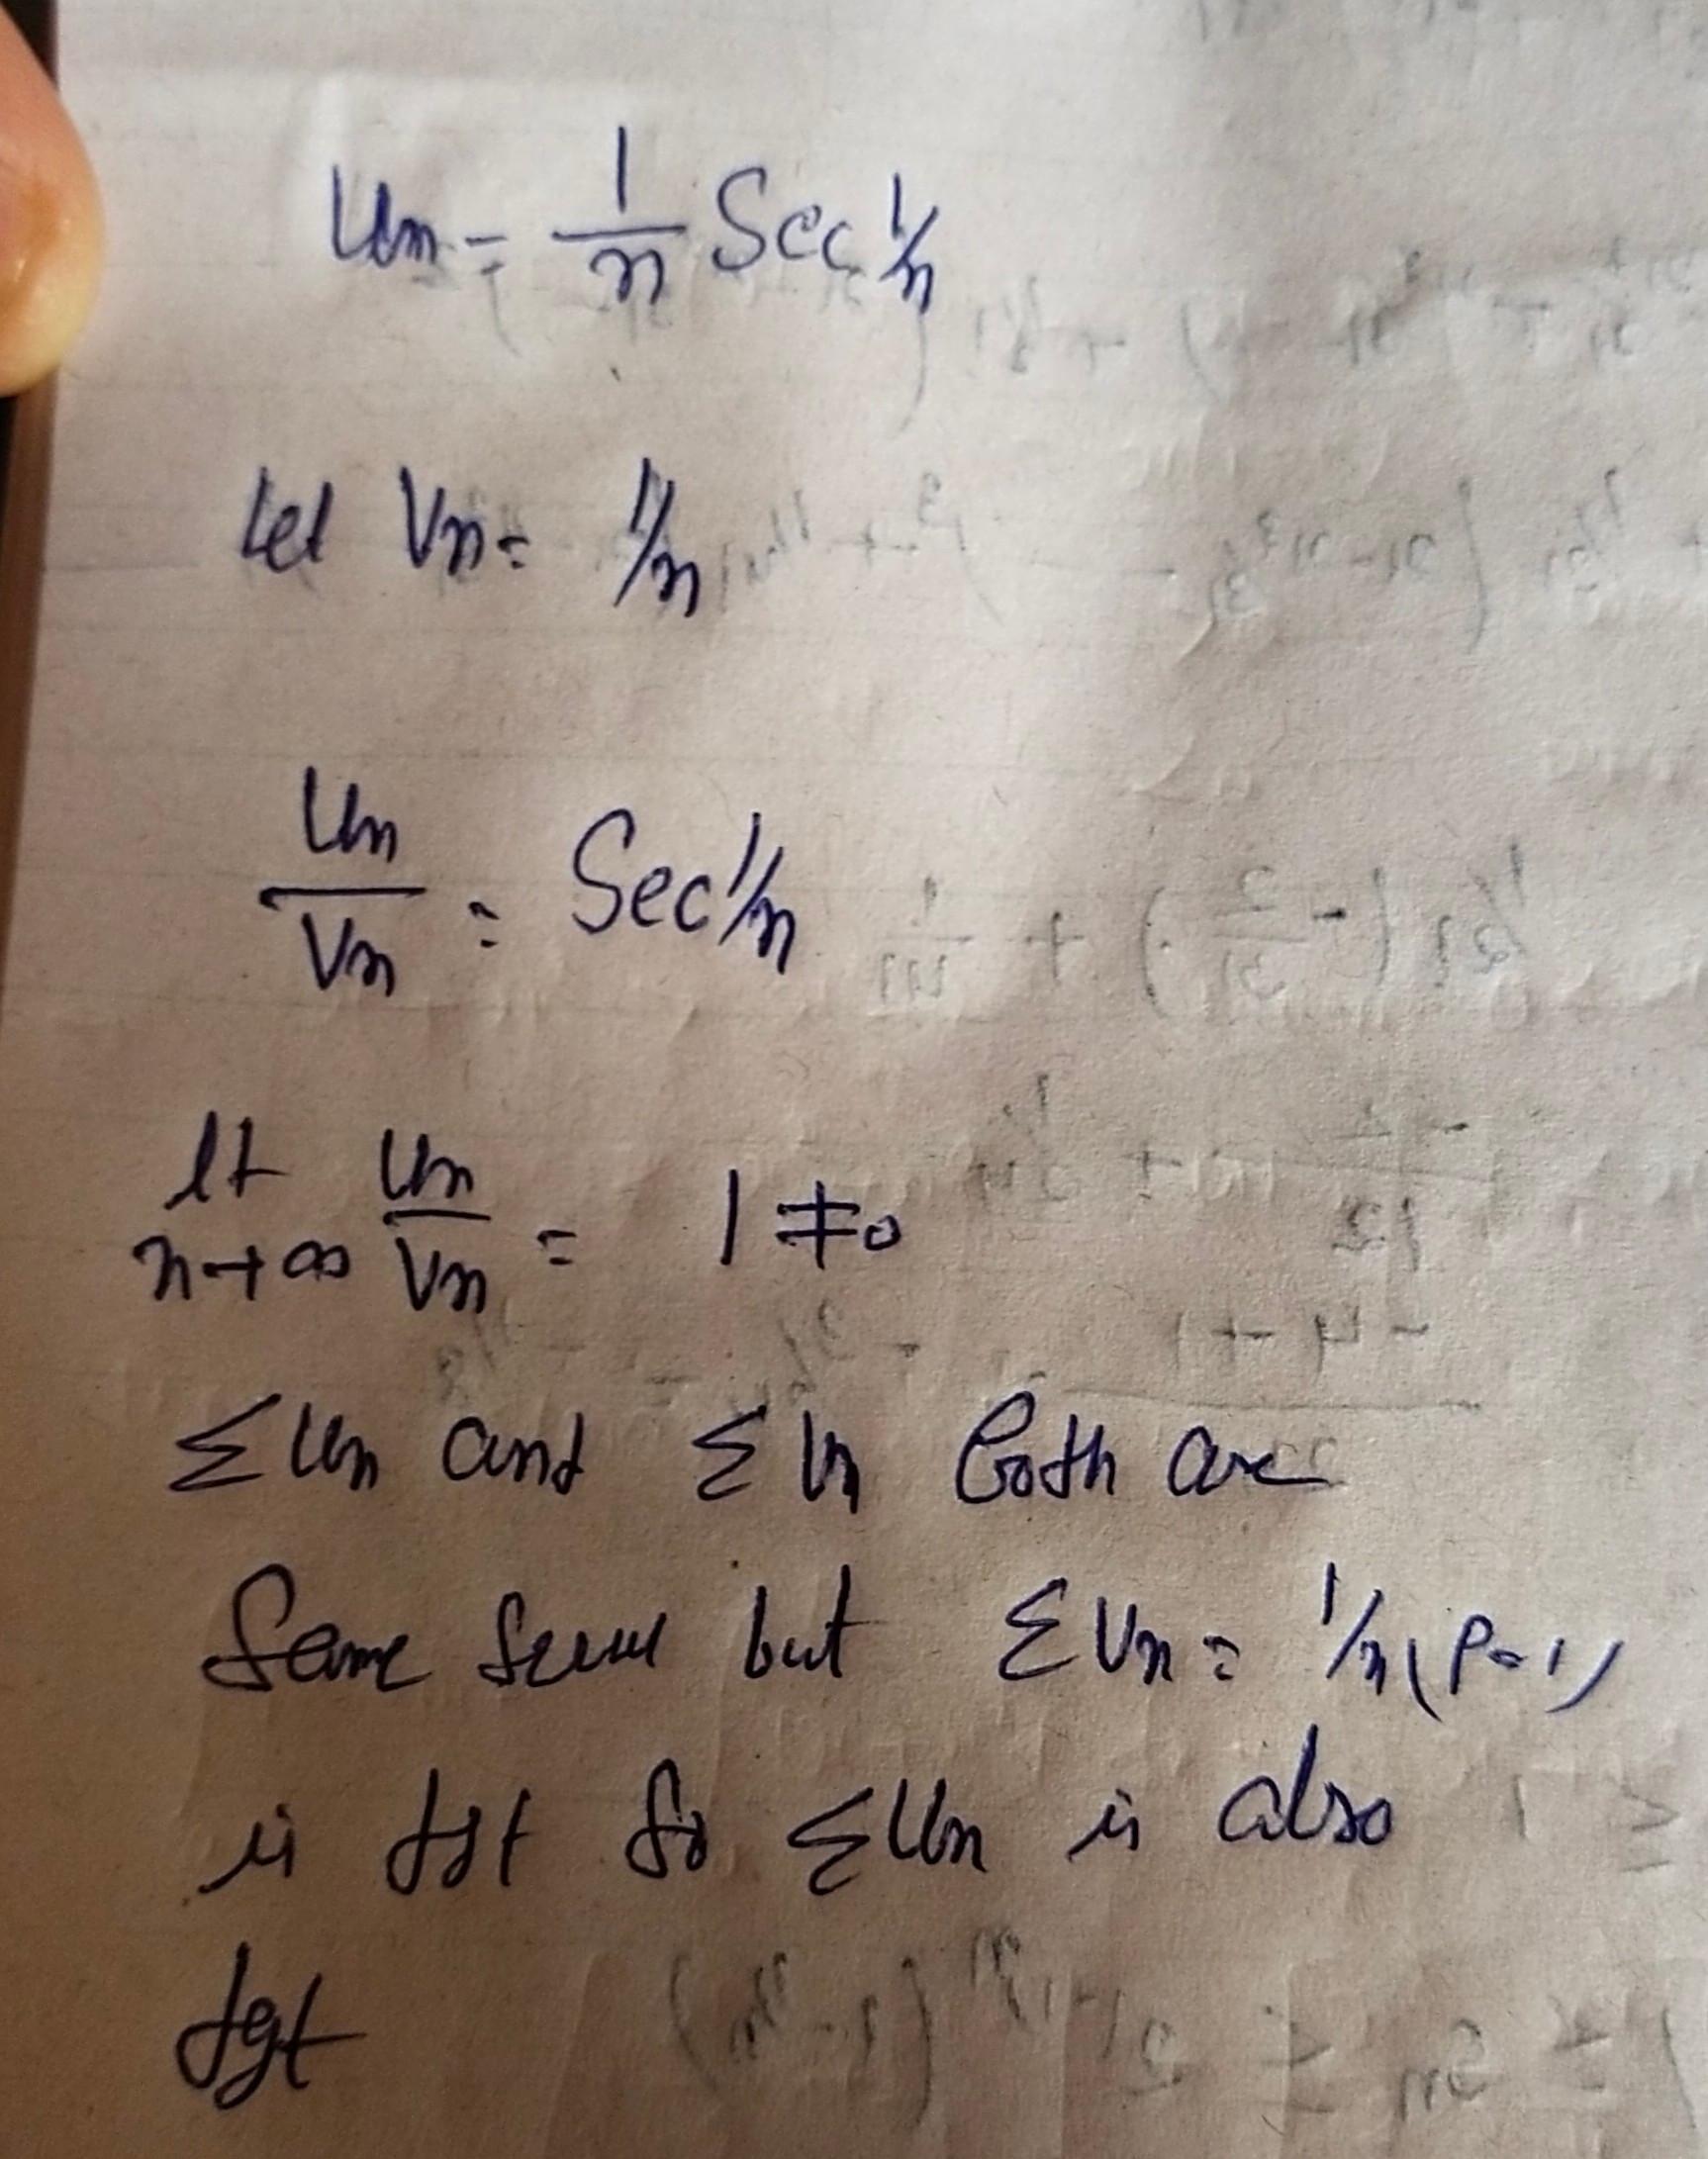 Un = 1/n Sec 1/n
Let Vn = 1/n
Un/Vn = Sec 1/n
lt n→∞ Un/Vn = 1 ≠ 0
Σ Un and Σ Vn both are
Same but Σ Vn = 1/n (P=1)
is dgt So Σ Un is also
dgt